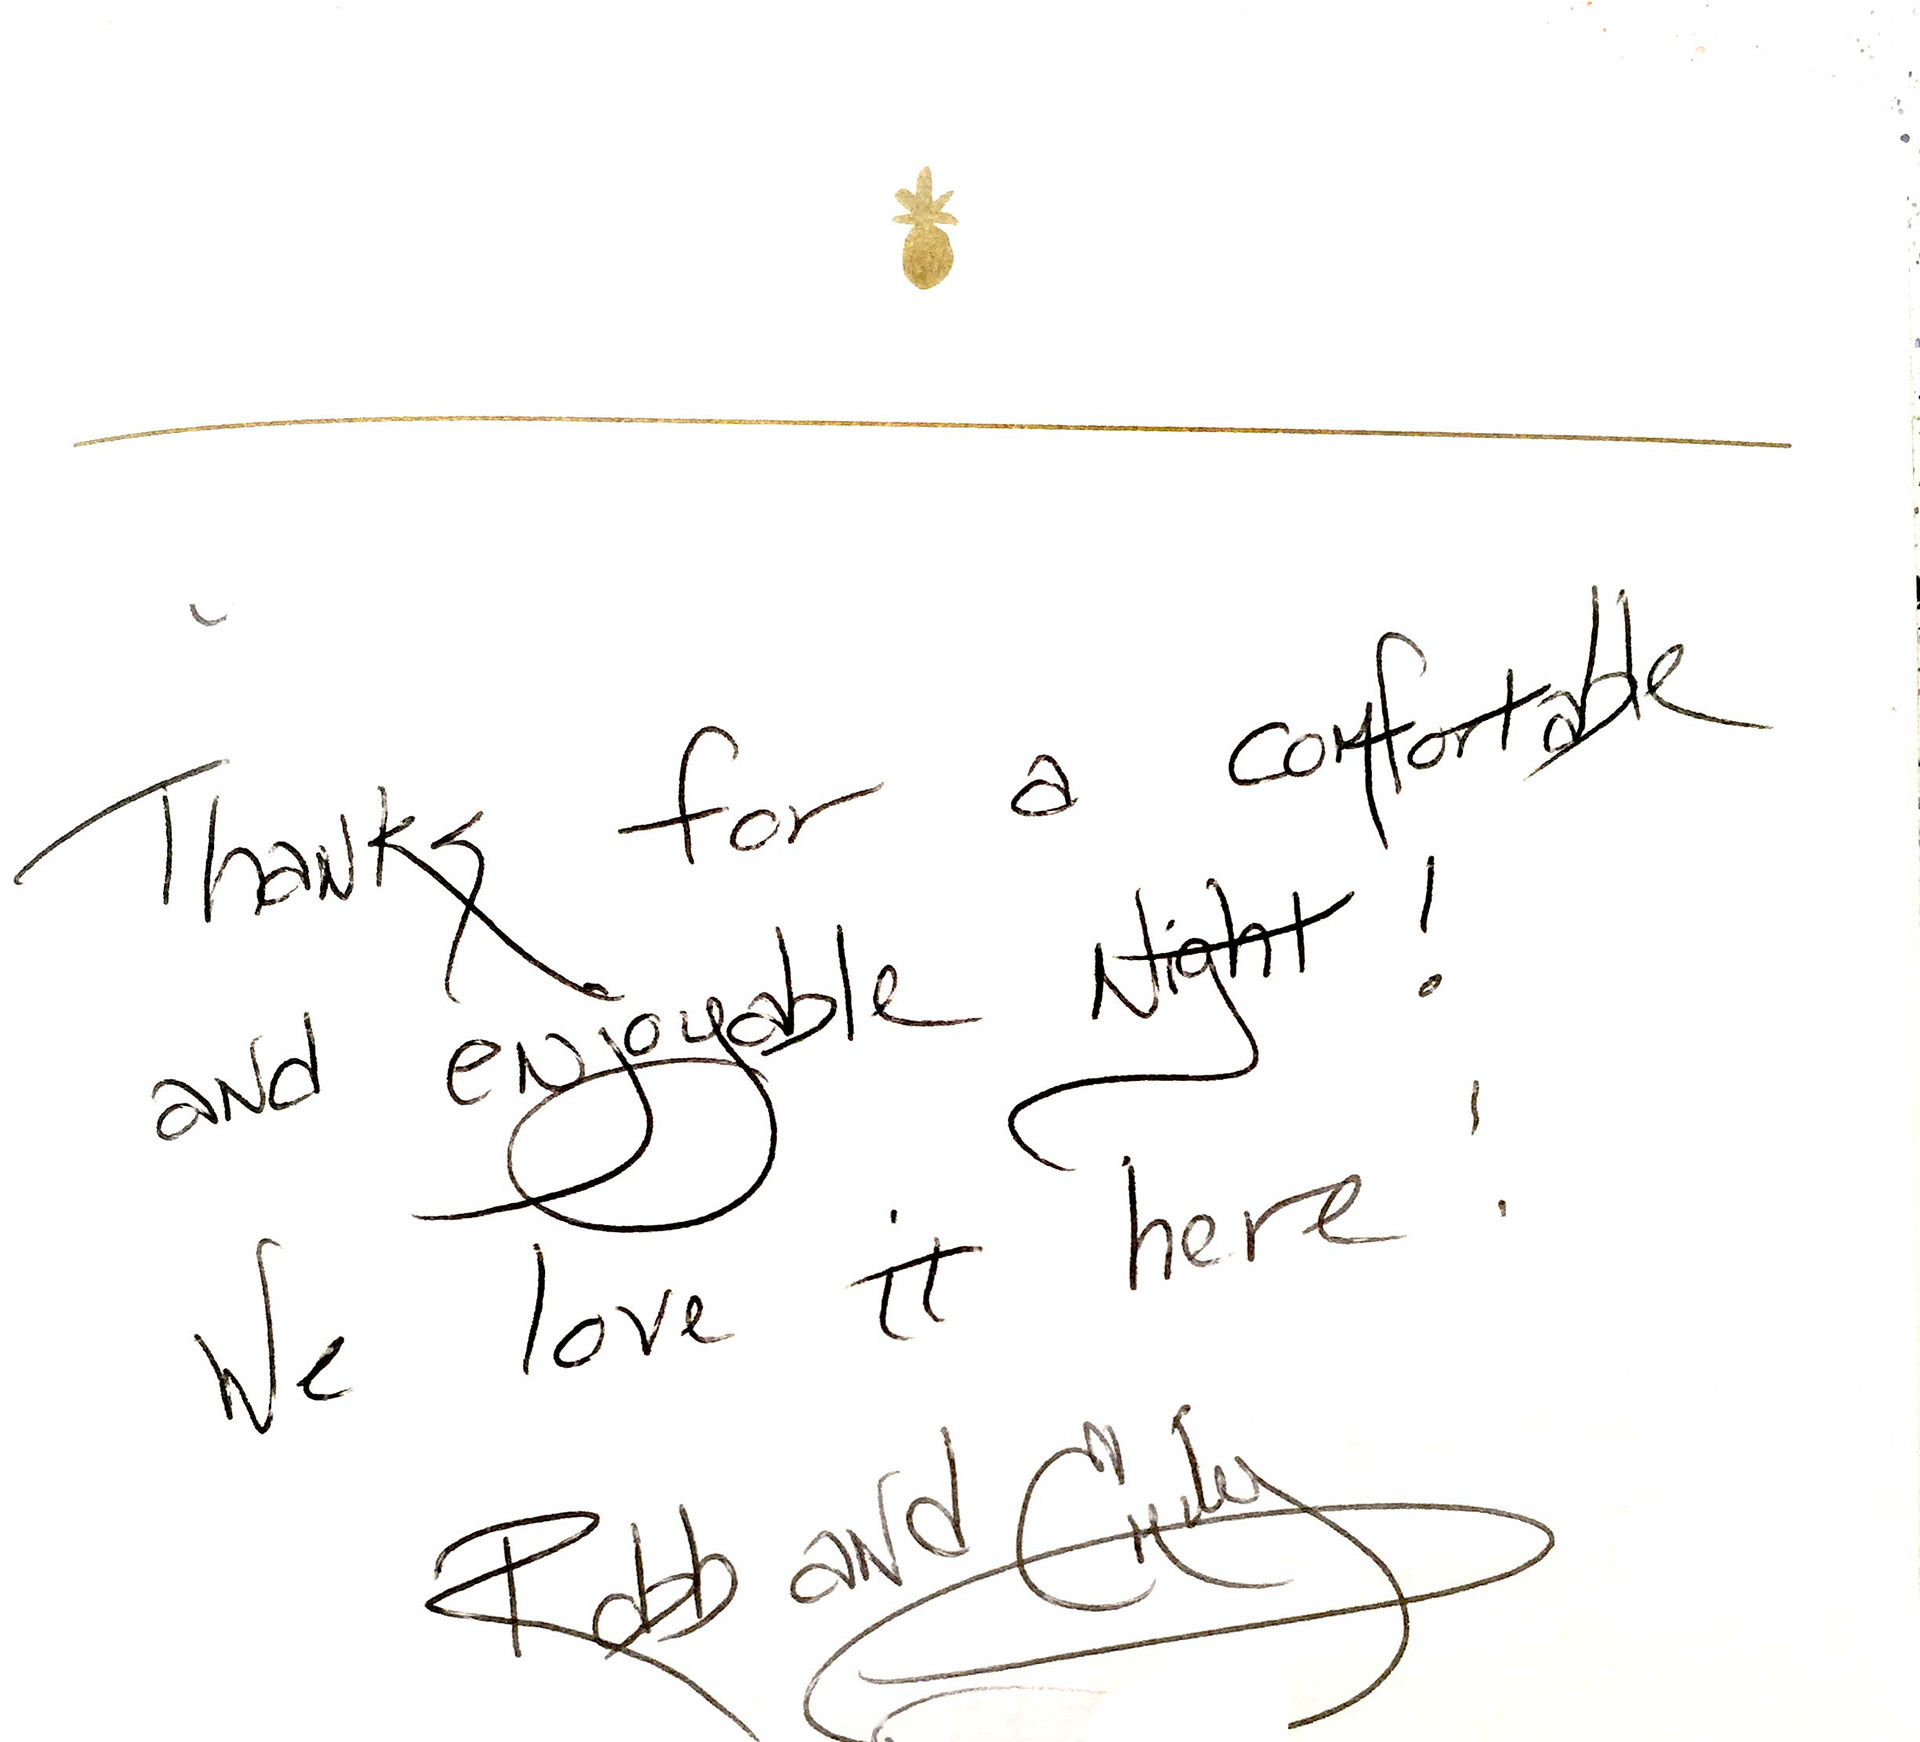 Thanks for a comfortable
and enjoyable Night!
We love it here!
Robb and Cindy